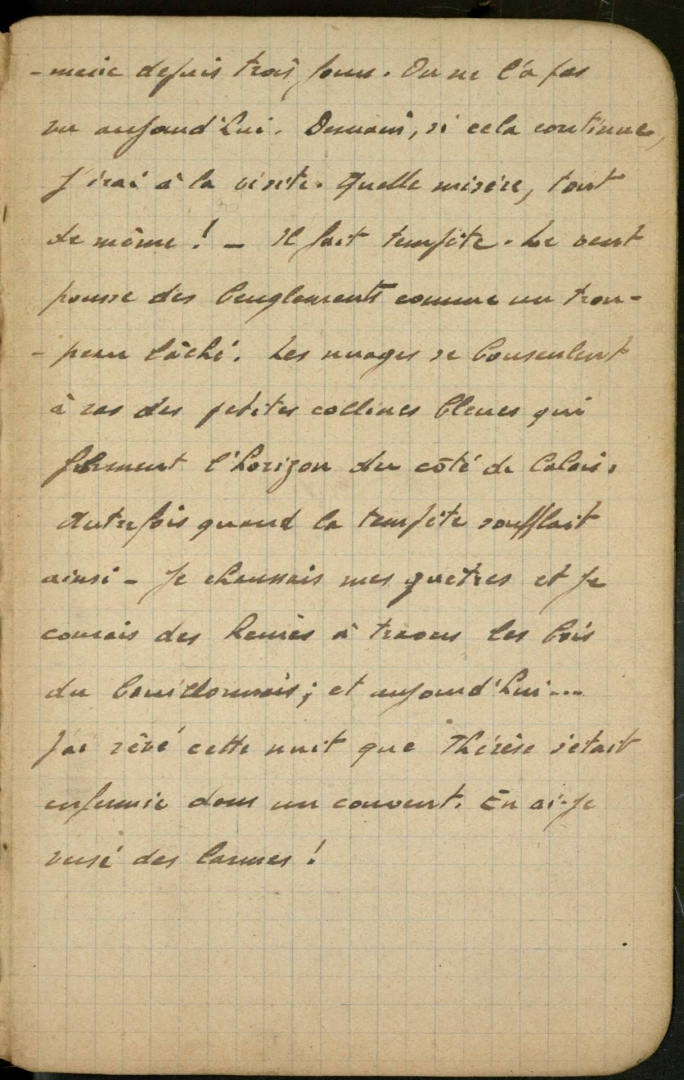 -merie depuis trois jours. On ne l'a pas
vu aujourd'hui. Demain, si cela continue,
j'irai à la visite. Quelle misère, tout
de même ! _ Il fait tempête. Le vent
pousse des beuglements comme un trou-
- peau lâché. Les nuages se bousculent
à ras des petites collines bleues qui
ferment l'horizon du côté de Calais.
Autrefois quand la tempête soufflait
ainsi - je chaussais mes guêtres et je
courais des heures à travers les bois
du ; et aujourd'hui...
J'ai rêvé cette nuit que Thérèse s'était
enfermée dans un couvent. En ai-je
versé des larmes !